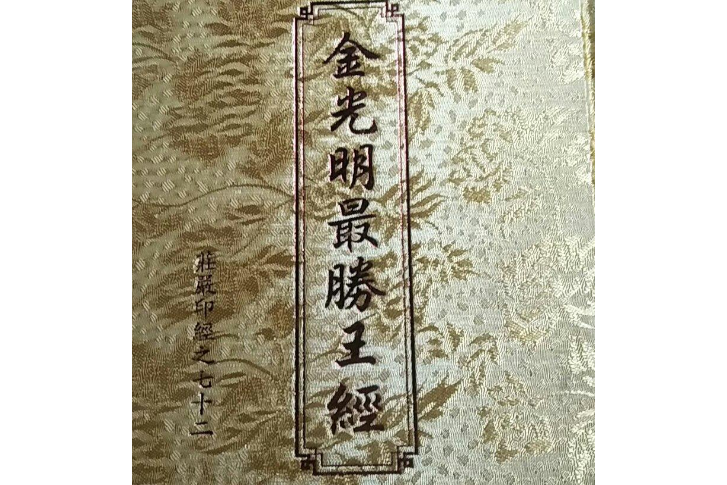 金光明最勝王經
莊嚴印經之七十二